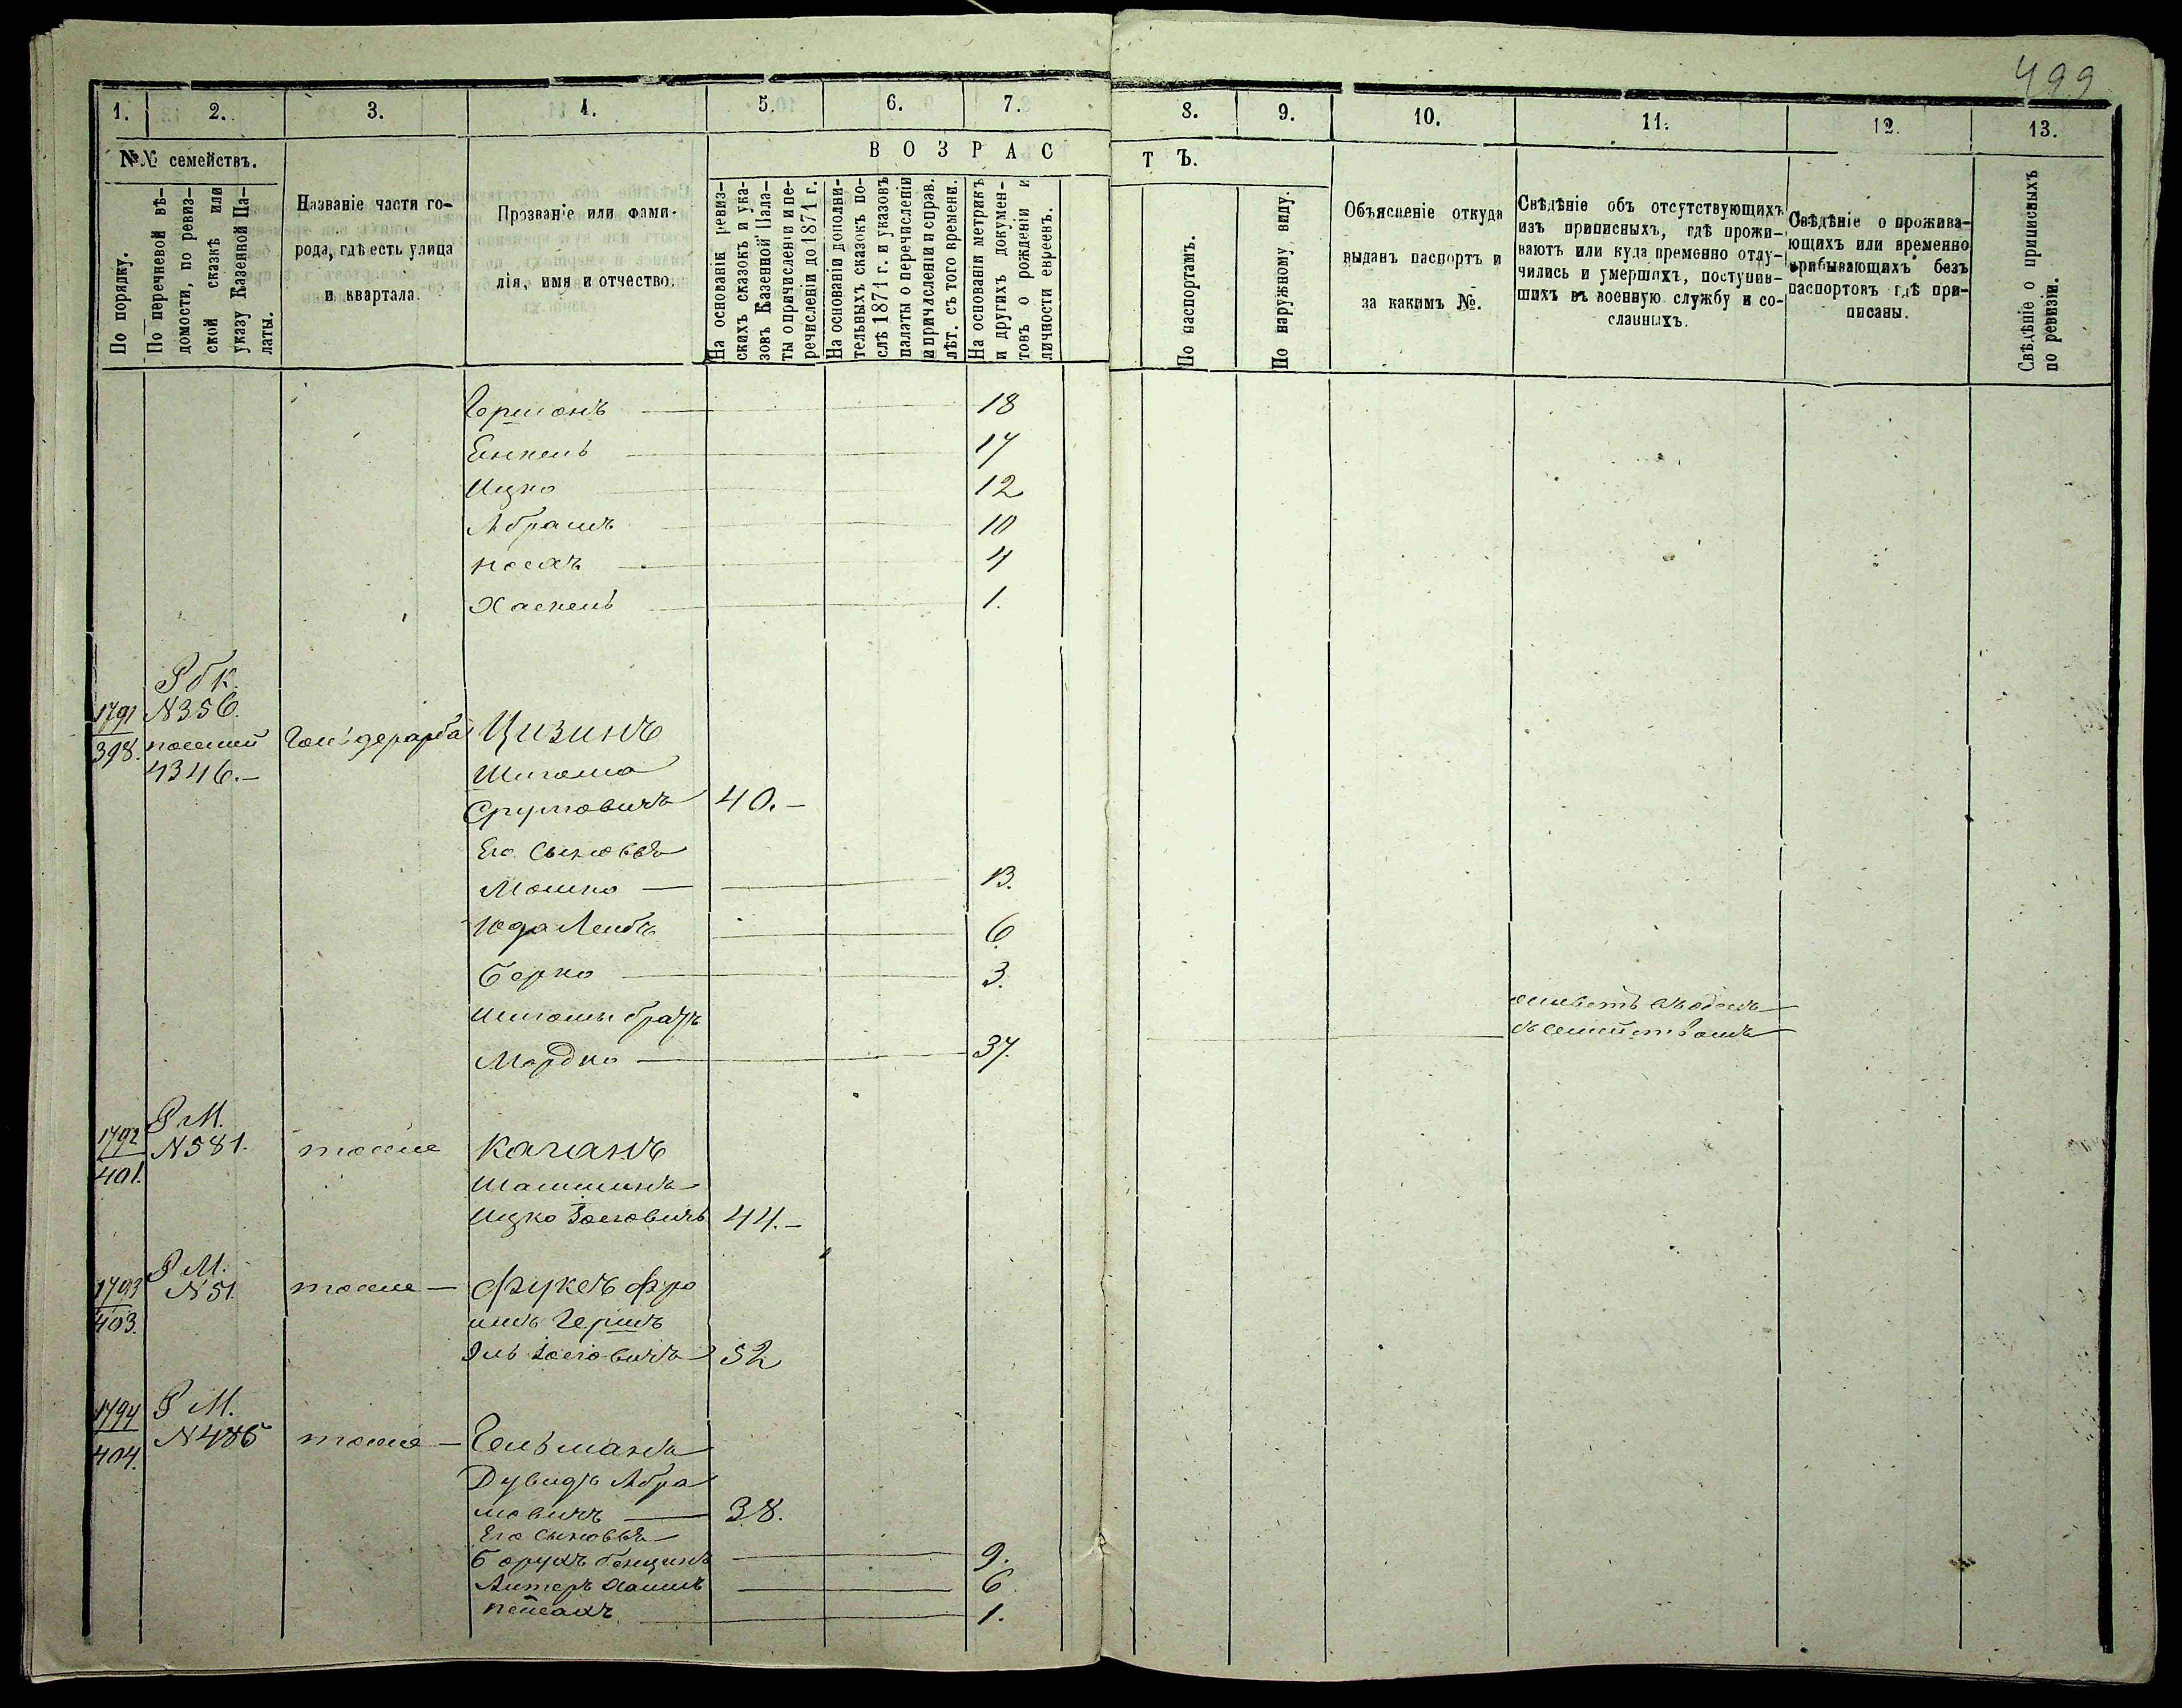 499
1. 2. 3. 4. 5. 6. 7. 8. 9. 10. 11. 12. 13.
№№ семействъ.
По порядку.
По перечневой вѣ-
домости, по ревиз-
ской сказкѣ или
указу Казенной Па-
латы.
Названіе части го-
рода, гдѣ есть улица
и квартала.
Прозваніе или фами-
лія, имя и отчество.
ВОЗРАСТЪ.
На основаніи ревиз-
скихъ сказокъ и ука-
зовъ Казенной Пала-
ты о причисленіи и пе-
речисленіи до 1871 г.
На основаніи дополни-
тельныхъ сказокъ по-
слѣ 1871 г. и указовъ
палаты о перечисленіи
и причисленіи и справ.
лѣт. съ того времени.
На основаніи метрикъ
и другихъ докумен-
товъ о рожденіи и
личности евреевъ.
По паспортамъ.
По наружному виду.
Объясненіе откуда
выданъ паспортъ и
за какимъ №.
Свѣдѣніе объ отсутствующихъ
изъ приписныхъ, гдѣ прожи-
ваютъ или куда временно отлу-
чились и умершихъ, поступив-
шихъ въ военную службу и со-
сланныхъ.
Свѣдѣніе о прожива-
ющихъ или временно
прибывающихъ безъ
паспортовъ гдѣ при-
писаны.
Свѣдѣніе о приписныхъ
по ревизіи.
Гершонъ 18
Енкель 17
Ицко 12
Абрамъ 10
Носхъ 4
Хаскель 1.
Р б К.
1791 N 356.
398. 4346.- Цизинъ
Шлома
Сруловичъ 40.-
Его Сыновья
Мошко 13.
Юда Лейбъ 6
Берко 3.
Шломы братъ
Мордко 37.
живетъ въ Одессѣ
съ семействомъ
Р М.
1792 N 581. тоже Каганъ
401. Шаминъ
Ицко Іосіовичъ 44.-
Р М.
1793 N 51. тоже Фуксъ Фро
403. имъ Гершъ
Эль Іосіовичъ 52
1794 Р М.
N 486 тоже Гельманъ
404.
Дувидъ Абра
мовичъ 38.
Его сыновья
Борухъ Бенционъ 9.
Алтеръ Хаимъ 6
Пейсахъ 1.